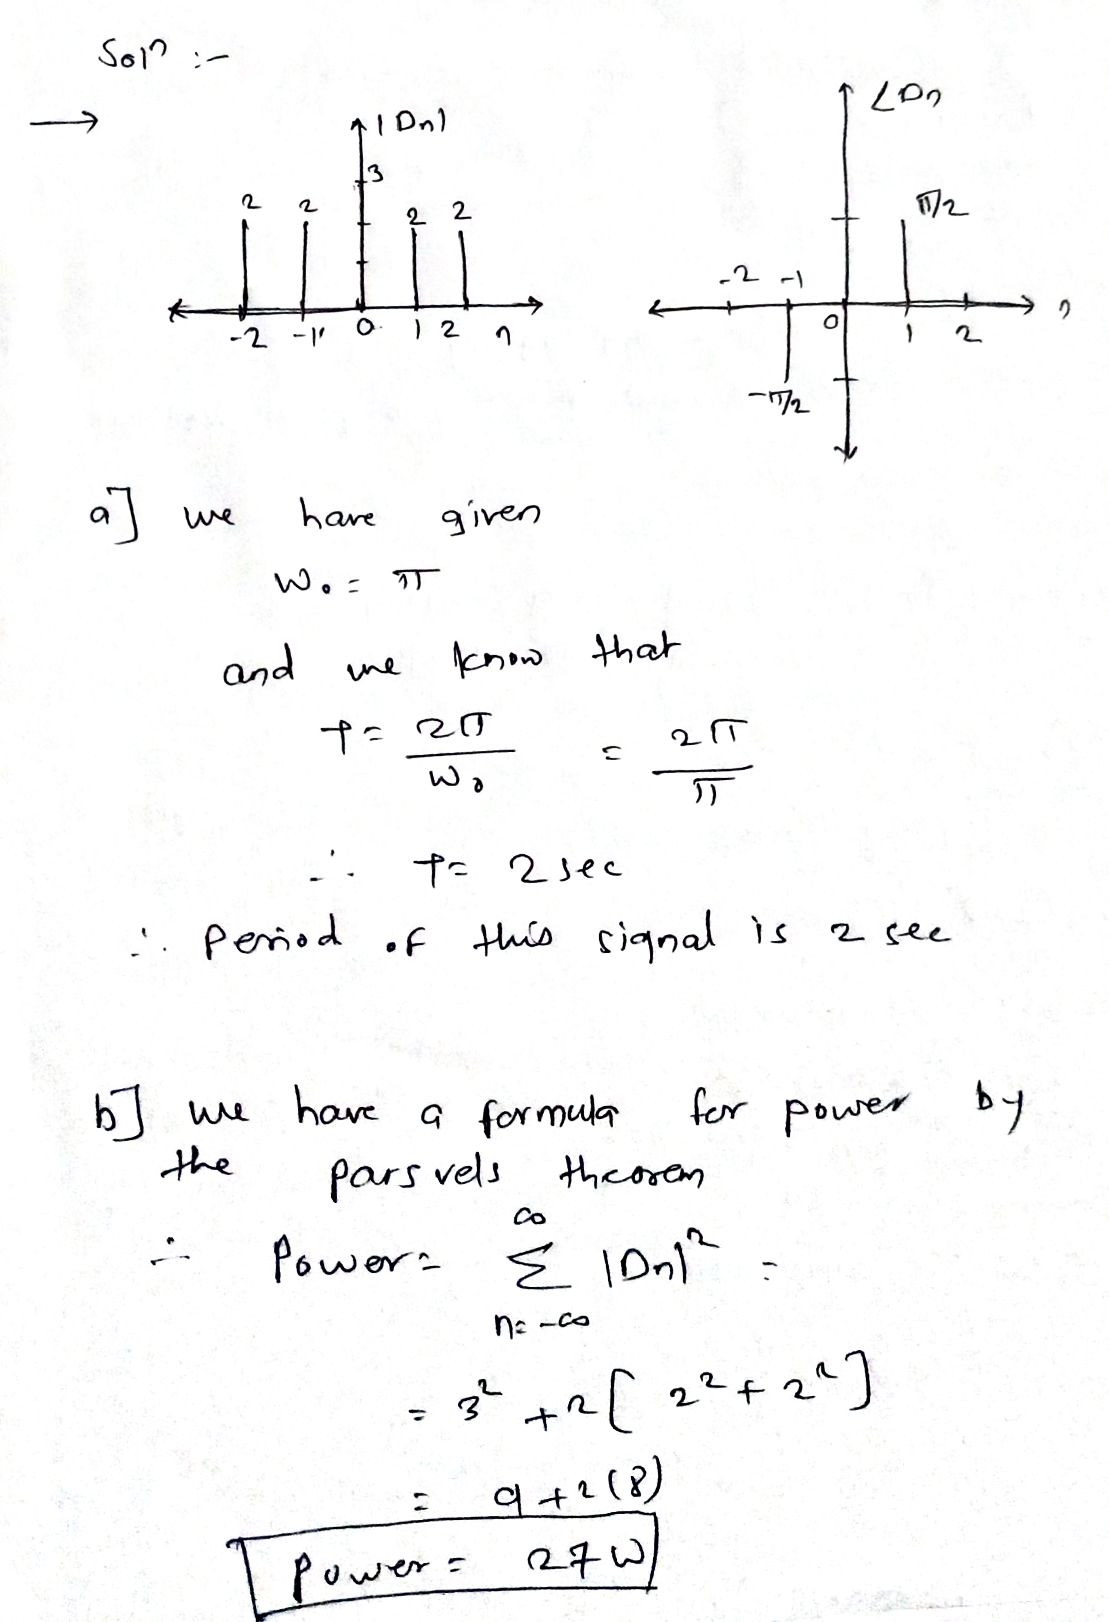 Solⁿ :-
→
|Dn|
3
2 2 2 2
-2 -1 0 1 2 n
∠Dn
π/2
-2 -1
0 1 2 n
-π/2
a] we have given
W₀ = π
and we know that
T = 2π/W₀ = 2π/π
∴ T = 2 sec
∴ Period of this signal is 2 sec
b] we have a formula for power by
the parsvels theorem
∴ Power = ∞ Σ n=-∞ |Dn|² =
= 3² + 2[ 2² + 2² ]
= 9 + 2(8)
Power = 27 W